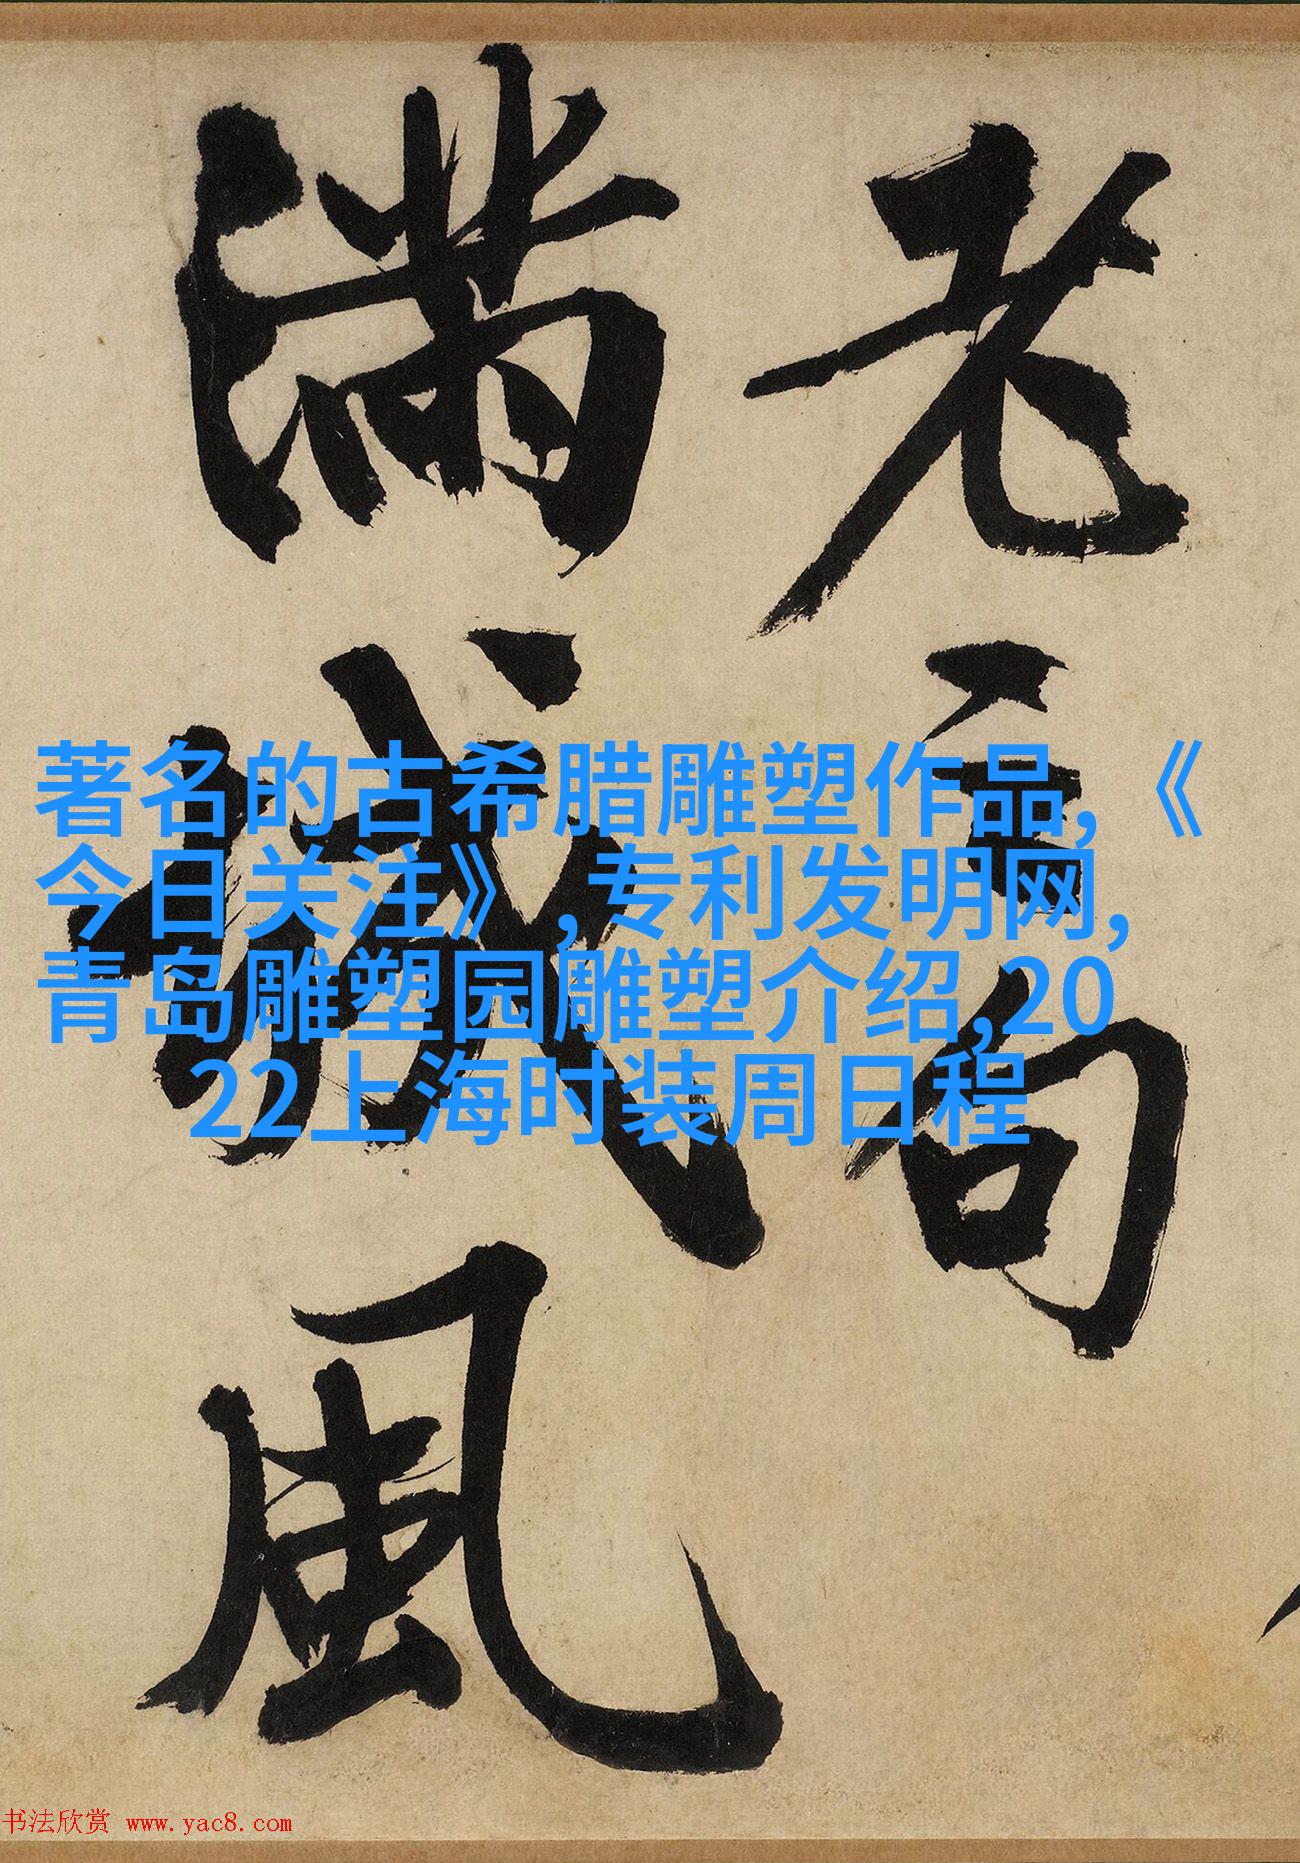 老句
滿城風
著名的古希腊雕塑作品,《
今日关注》,专利发明网,
青岛雕塑园雕塑介绍,20
22上海时装周日程
书法欣赏 www.yac8.com